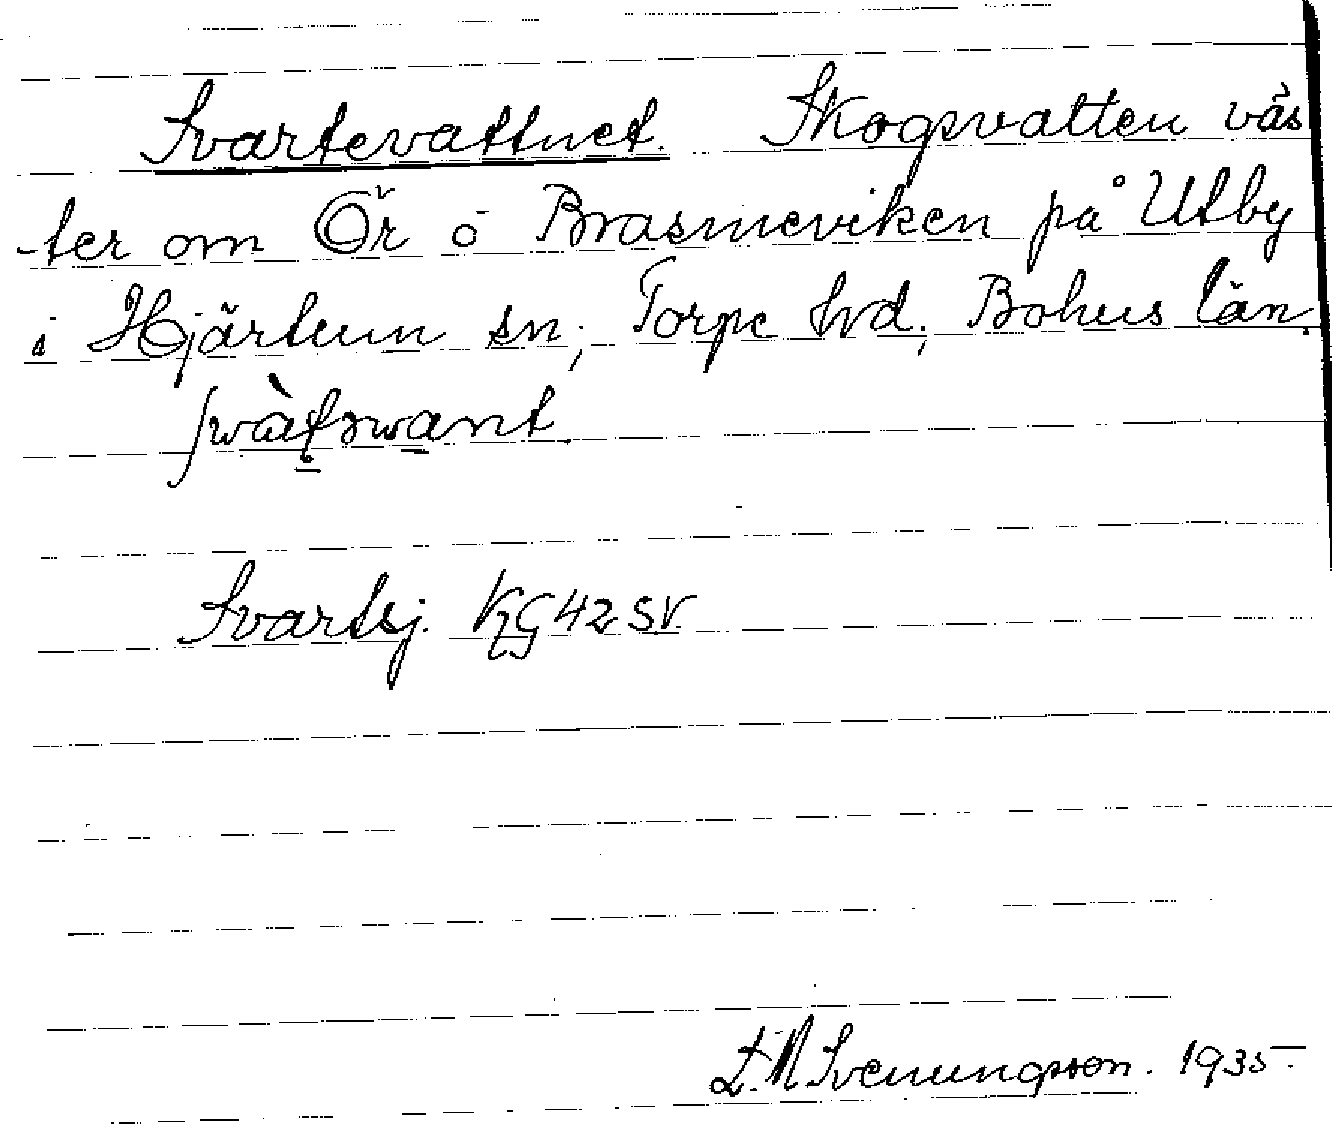 Svartevattnet. Skogsvatten väs
ter om Ör o Brasmeviken på Utby
i Hjärtum sn; Torpe hrd; Bohus län.
Svartsj. KG 42 SV.
L. M Svenungsson. 1935